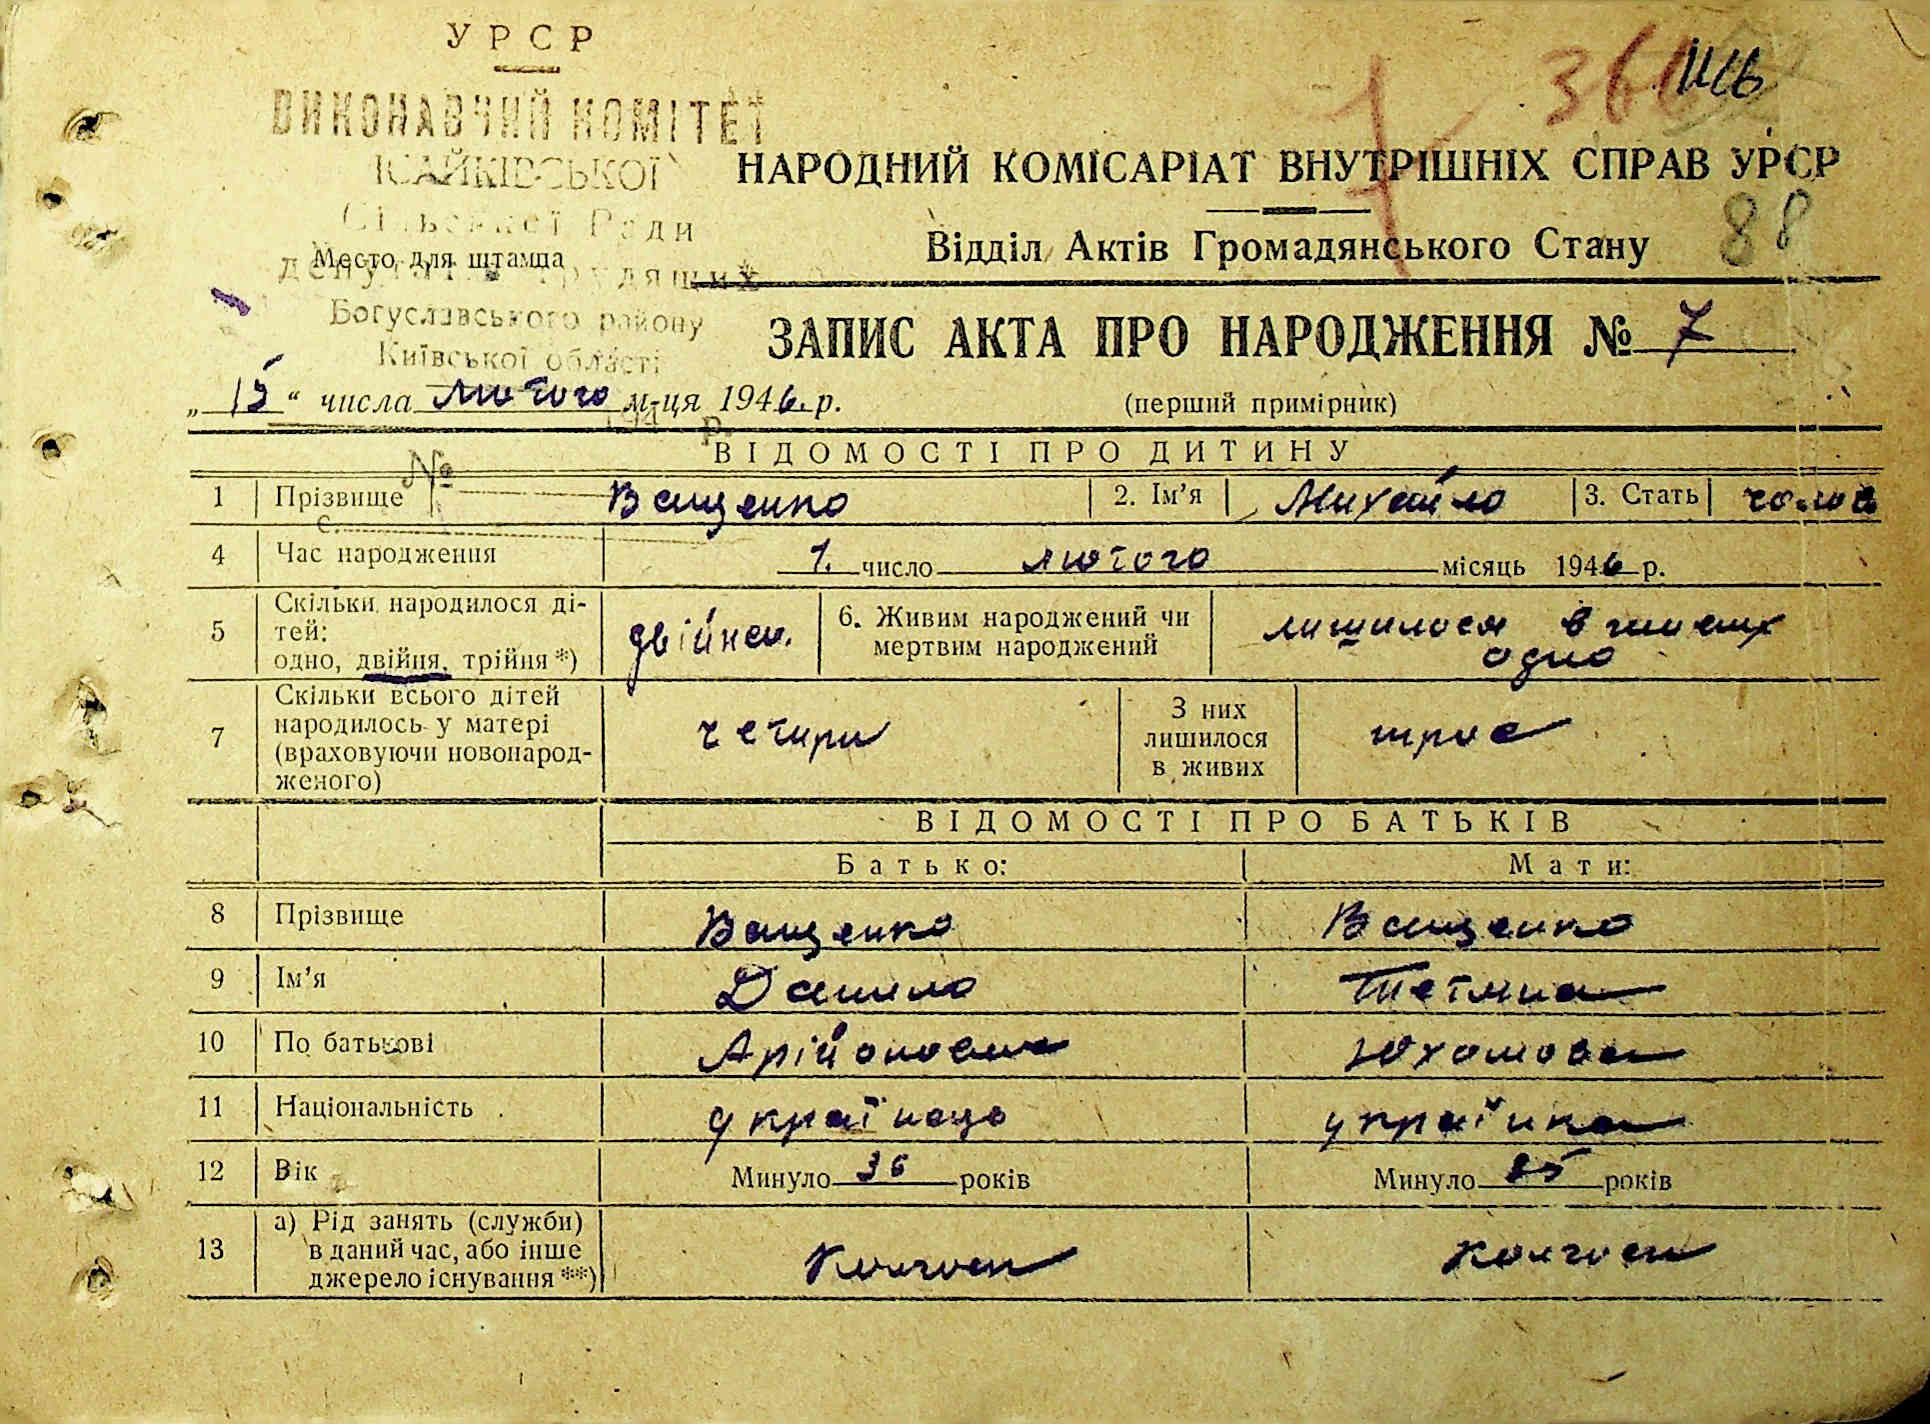 УРСР
ВИКОНАВЧИЙ КОМІТЕТ
ІСАЙКІВСЬКОЇ
Сільської Ради
депутатів трудящих
Богуславського району
Київської області
Место для штампа
НАРОДНИЙ КОМІСАРІАТ ВНУТРІШНІХ СПРАВ УРСР
88
Відділ Актів Громадянського Стану
ЗАПИС АКТА ПРО НАРОДЖЕННЯ № 7
„15“ числа лютого м-ця 1946 р.
(перший примірник)
ВІДОМОСТІ ПРО ДИТИНУ
№
1 Прізвище Ващенко 2. Ім’я Михайло 3. Стать чолов
4 Час народження 1. число лютого місяць 1946 р.
5 Скільки народилося ді-
тей:
одно, двійня, трійня *)
двійня.
6. Живим народжений чи
мертвим народжений
лишилося в живих
одно
7 Скільки всього дітей
народилось у матері
(враховуючи новонарод-
женого)
четири
З них
лишилося
в живих
троє
ВІДОМОСТІ ПРО БАТЬКІВ
Батько: Мати:
8 Прізвище Ващенко Ващенко
9 Ім’я Данило Тетяна
10 По батькові Юхомова
11 Національність українець українка
12 Вік Минуло 36 років Минуло років
13 а) Рід занять (служби)
в даний час, або інше
джерело існування **)
Колгосп Колгосп